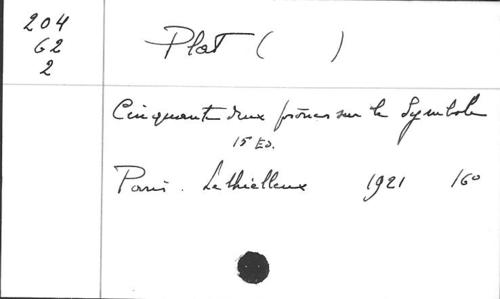 204
G2
2
Plat ( )
Cinquante deux prônes sur le Symbole
15e Ed.
Paris . Lethielleux 1921 16o